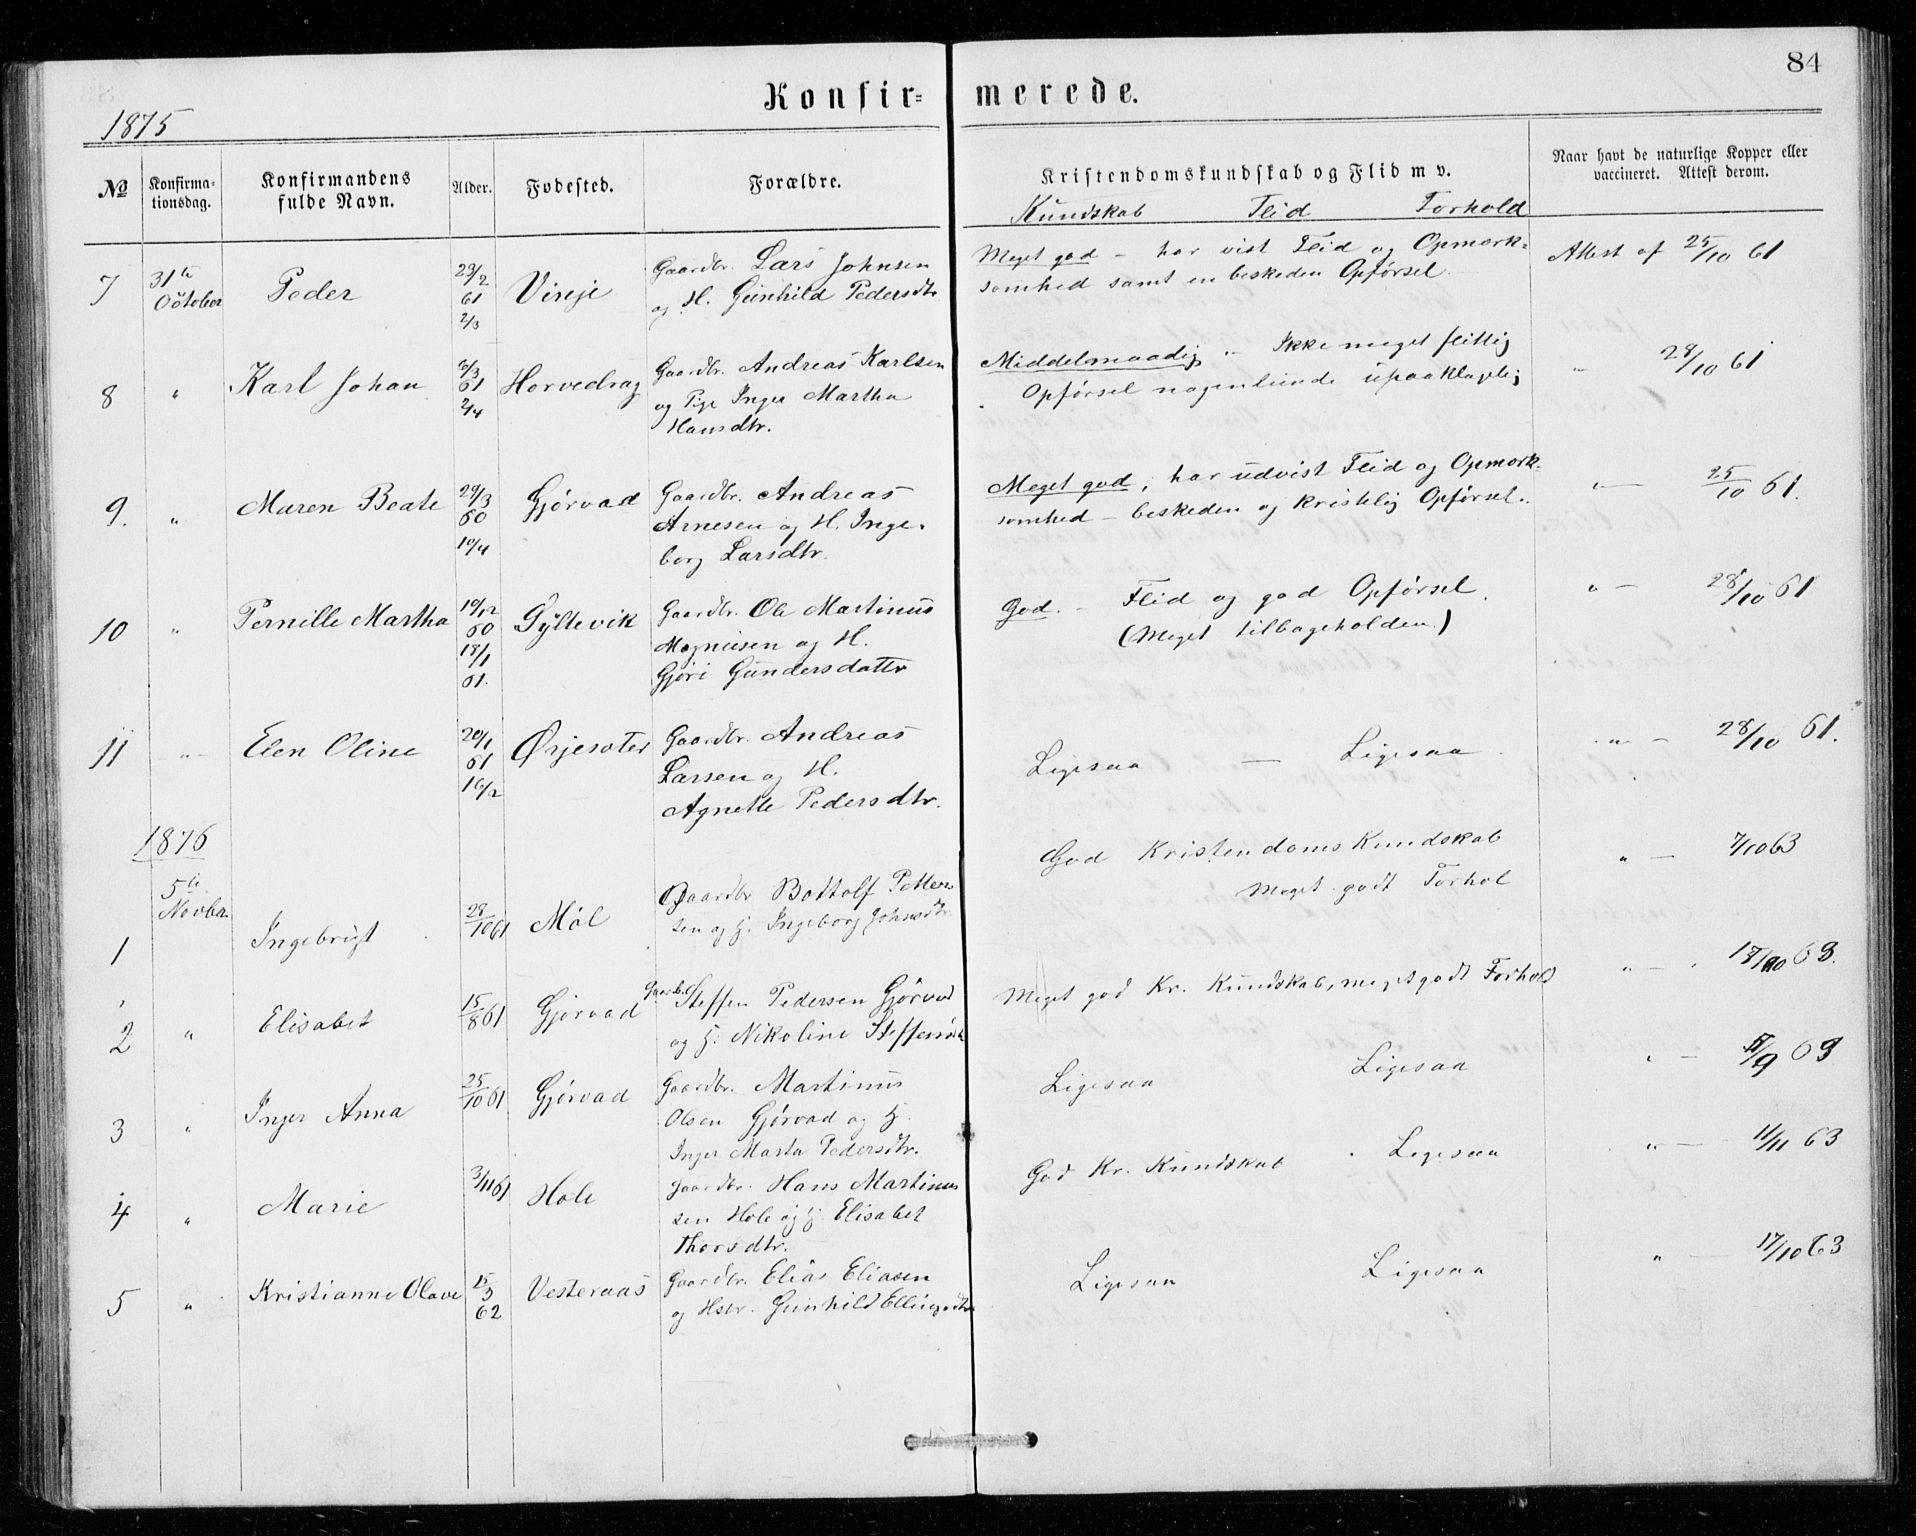 84
Konfir= merede.
1875
No
Konfirma-
tionsdag.
Konfirmandens
fulde Navn.
Alder.
Fødested.
Forældre.
Kristendomskundskab og Flid m v.
Kundskab Flid Forhold
Naar havt de naturlige Kopper eller
vaccineret. Attest derom.
7 31te October Peder 23/2 61 2/3 Vinje
Gaardbr. Lars Johnsen
og H. Gunhild Pedersdtr
Meget god - har vist Flid og Opmærk=
somhed samt en beskeden Opførsel.
Attest af 25/10 61
8 " Karl Johan 6/3 61 2/4 Horvedrag
Gaardbr. Andreas Karlsen
og Pige Inger Martha
Hansdtr.
Middelmaadig - Ikke meget flittig
Opførsel nogenlunde upaaklagelig
" 28/10 61
9. " Maren Beate 29/3 60 10/4 Gjørvad
Gaardbr. Andreas
Arnesen og H. Inge-
borg Larsdtr.
Meget god, har udvist Flid og Opmærk-
somhed - beskeden og kristelig Opførsel.
" — 25/10 61.
10 " Pernille Martha 10/12 60 18/1 61. Syltevik
Gaardbr. Ole Martinus
Magnusen og H.
Gjøri Gundersdatter
God. - Flid og god Opførsel.
(Meget tilbageholden.)
" — 28/10 61
11 " Elen Oline 20/1 61 16/2 Ørjesæter
Gaardbr. Andreas
Larsen og H.
Agnette Pedersdtr.
Ligesaa — Ligesaa
" — 28/10 61.
1876
5te Novbr.
1 Ingebrigt 28/10 61 Møl
Gaardbr Bottolf Petter
sen og H. Ingeborg Johnsdtr
God Kristendoms Kundskab
Meget godt Forhol
" — 7/10 63
2 " Elisabet 15/8 61 Gjørvad
Gaardbr. Steffen Pedersen Gjørvad
og H. Nikoline Steffensdtr
Meget god Kr. Kundskab, meget godt Forhold
" — 18/10 63.
3 " Inger Anna 25/10 61 Gjørvad
Gaardbr. Martinus
Olsen Gjørvad og H.
Inger Marta Pedersdtr.
Ligesaa Ligesaa
" — /9 63
4 " Marie 3/11 61 Hole
Gaardbr. Hans Martinus
sen Hole og H. Elisabet
Thorsdtr.
God Kr. Kundskab Ligesaa
" — 11/11 63
5 " Kristianne Olave 15/3 62 Vesteraas
Gaardbr. Elias Eliasen
og Hstr. Gunhild Ellingsdtr
Ligesaa Ligesaa
" — 17/10 63